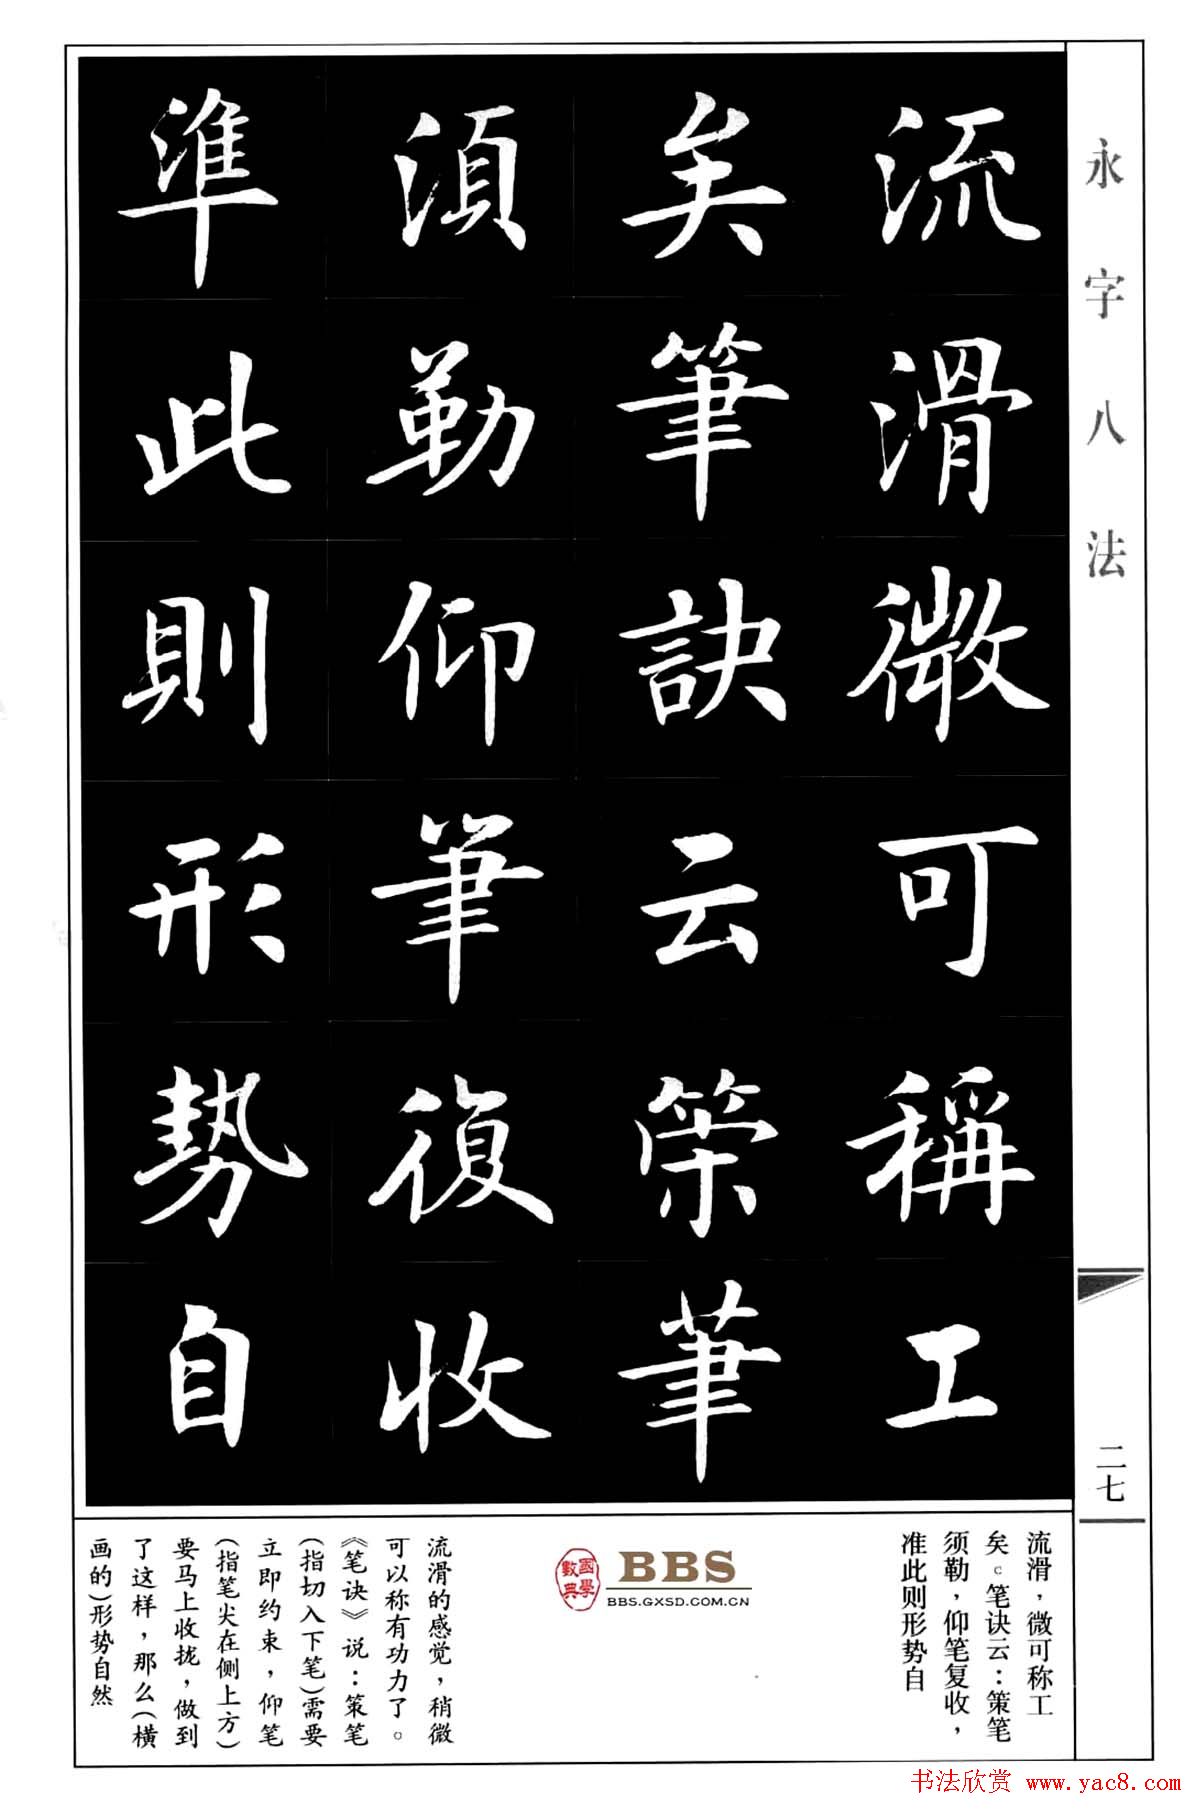 永字八法
流滑微可稱工
矣筆訣云策筆
須勒仰筆復收
準此則形勢自
二七
流滑，微可称工
矣。笔诀云：策笔
须勒，仰笔复收，
准此则形势自
國學數典
BBS
BBS.GXSD.COM.CN
流滑的感觉，稍微
可以称有功力了。
《笔诀》说：策笔
(指切入下笔)需要
立即约束，仰笔
(指笔尖在侧上方)
要马上收拢，做到
了这样，那么(横
画的)形势自然
书法欣赏 www.yac8.com